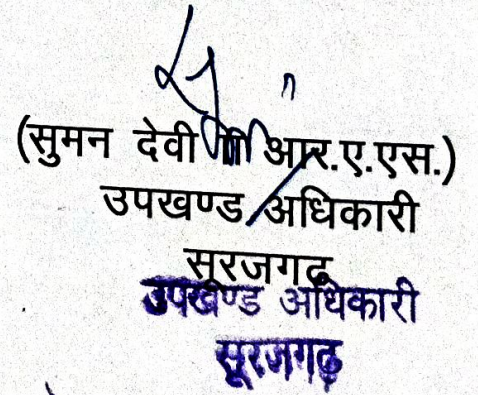 (सुमन देवी आर.ए.एस.)
उपखण्ड अधिकारी
सूरजगढ़
उपखण्ड अधिकारी
सूरजगढ़